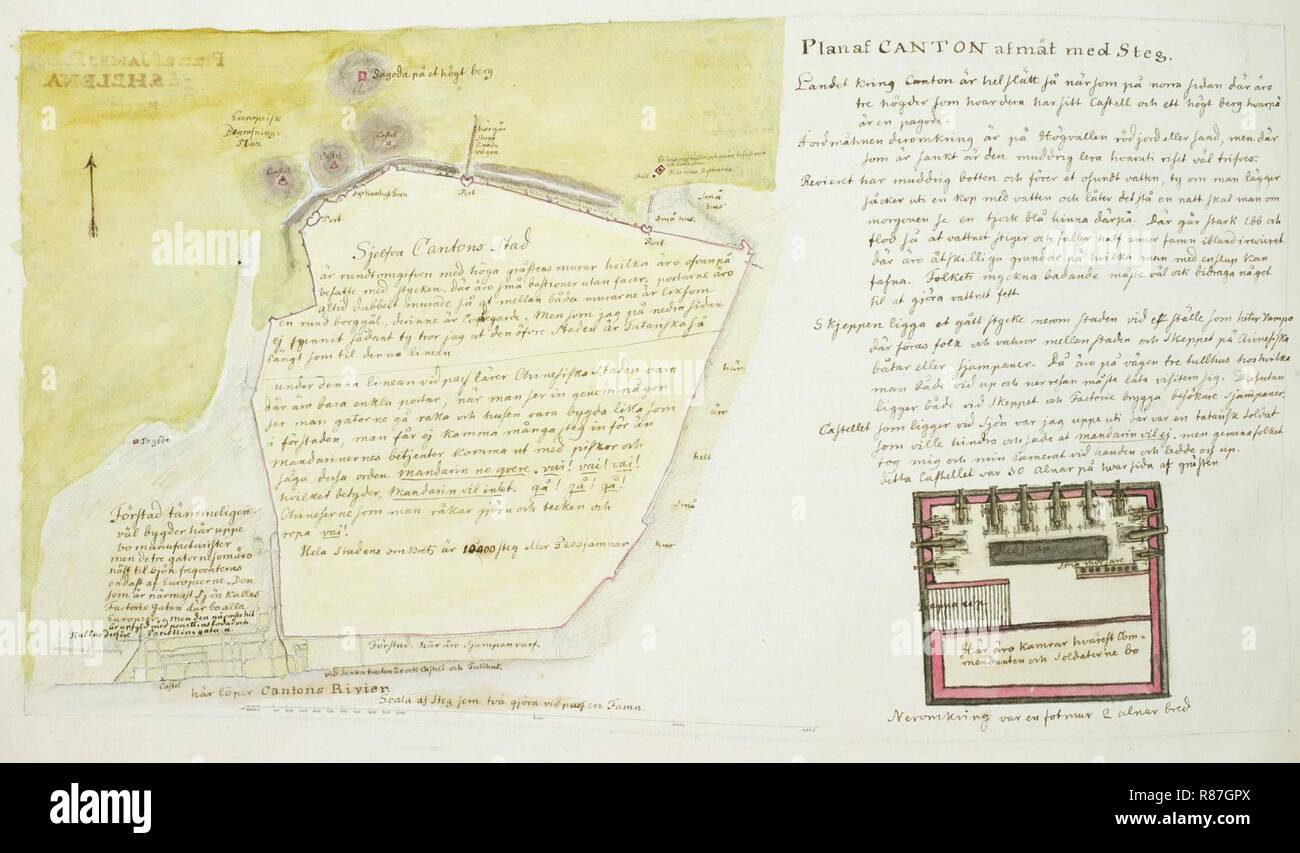 Plan af CANTON afmät med Steg.
Landet kring Canton är helslätt så när som på norra sidan där äro
tre högder som hvardera har sitt Castell och ett högt berg hvarpå
är en pagode.
Jordmåhnen deromkring är på Högvallen röd jord eller sand, men där
som är sankt är den muddrig lera hvaruti riset väl trifves.
Revieret har muddrig botten och förer et osundt vatten, ty om man lägger
såcker uti en kop med vatten och låter det stå en natt skal man om
morgonen se en tjock blå hinna därpå. Där går stark Ebb och
flod så at vattnet stiger och faller half annor famn ibland i reviret
där äro åtskilliga grundar på hvilka man med en slup kan
fastna. Folkets myckna badande måste väl ock bidraga något
til at gjöra vattnet fett
Skjeppen ligga et gått stycke nerom staden vid ett ställe som heter Vampo
där föras folk och varor mellan staden och Skeppet på Chinesiska
båtar eller sjampaner. Då äro på vägen tre tullhus hos hvilka
man både vid up och ner resan måste låta visitera sig. Desutan
ligger både vid Skeppet och Factorie brygga besökare sjampaner.
Castellet som ligger vid Sjön var jag uppe uti där var en tatarisk Soldat
som ville hindra och sade at mandarin vil ej. men gemena folket
tog mig och min Camerat vid handen och ledde oss up.
detta Castellet var 30 alnar på hvar sida af gråsten
Små mörsare
Här äro kamrar hvarest Com-
mendanten och Soldaterne bo
Neromkring var en fotmur 2 alnar bred
Pagoda på et högt berg
Europeisk
Begrafnings
Plaz
Castel
Castel
Castel
Port
Port
Port
Små
hus
Små hus.
Sjelfva Cantons Stad
är rundt omgifven med höga gråstens murar hvilka äro ofvanpå
besatte med stycken. där äro små bastioner utan facer. portarne äro
altid dubbelt murade så at mellan båda murarne är liksom
en rund borggål, derinne är Corps de garde. Men som jag på nedra sidan
ej funnit sådant ty tror jag at den öfre Staden är Tatariska så
långt som til denna linean
under denna linean vid pass lärer Chinesiska Staden vara
där äro bara enkla portar, när man ser in genom någon
ser man gatorne gå raka och husen vara bygda lika som
i förstaden, man får ej komma många steg in för än
Mandarinernes betjenter komma ut med piskor och
säga dessa orden. Mandarin no qvere. vai! vai! vai!
hvilket betyder, Mandarin vil intet. gå! gå! gå!
Chineserne som man råkar gjöra och tecken och
ropa vai!
Hela Stadens omkrets är 10400 steg eller 5200 famnar
här
äro
helt
Små
hus
Pagode
Förstad tämmeligen
väl bygder här uppe
bo manufacturister
men de tre gator som äro
näst til sjön freqventeras
endast af Europeerne. Den
som är närmast Sjön kallas
Factorie gatan där bo alla
Europeer. Men den närmste hit
är upfyld med porcellins bodar och
kallas därföre Porcellins gatan
Castel
Förstad. här äro Sjampan varf.
vid denna kanten är ock Castell och Tullhus.
här löper Cantons Rivier.
Scala af Steg som två gjöra vid pass en Famn.
alamy
alamy
Image ID: R87GPX
www.alamy.com